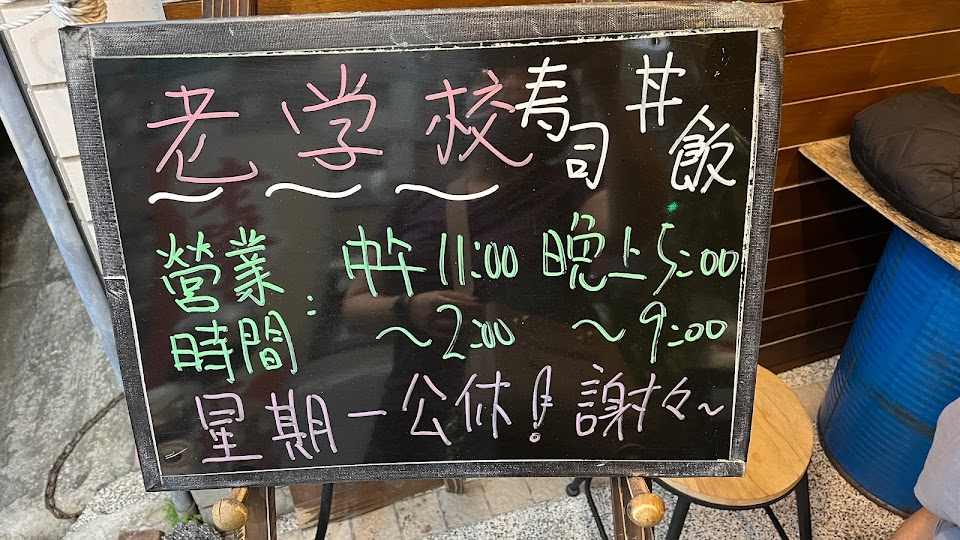 老学校寿司 丼飯
營業時間: 中午11:00~2:00 晚上5:00~9:00
星期一公休! 謝々~